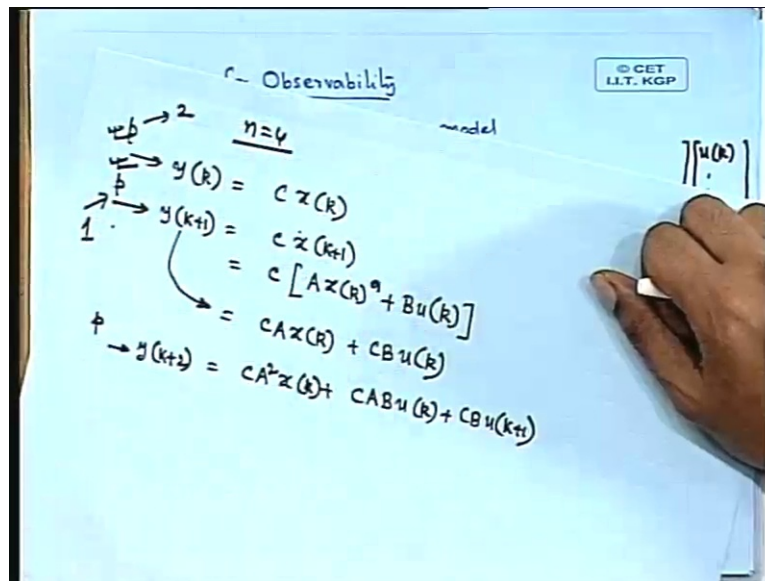 Observability
© CET
I.I.T. KGP
model
→ 2
n=4
→ y(k) = C x(k)
u(k)
p → y(k+1) = C x(k+1)
1
= C [Ax(k) + Bu(k)]
= CAx(k) + CBu(k)
p → y(k+2) = CA²x(k)+ CABu(k)+CBu(k+1)